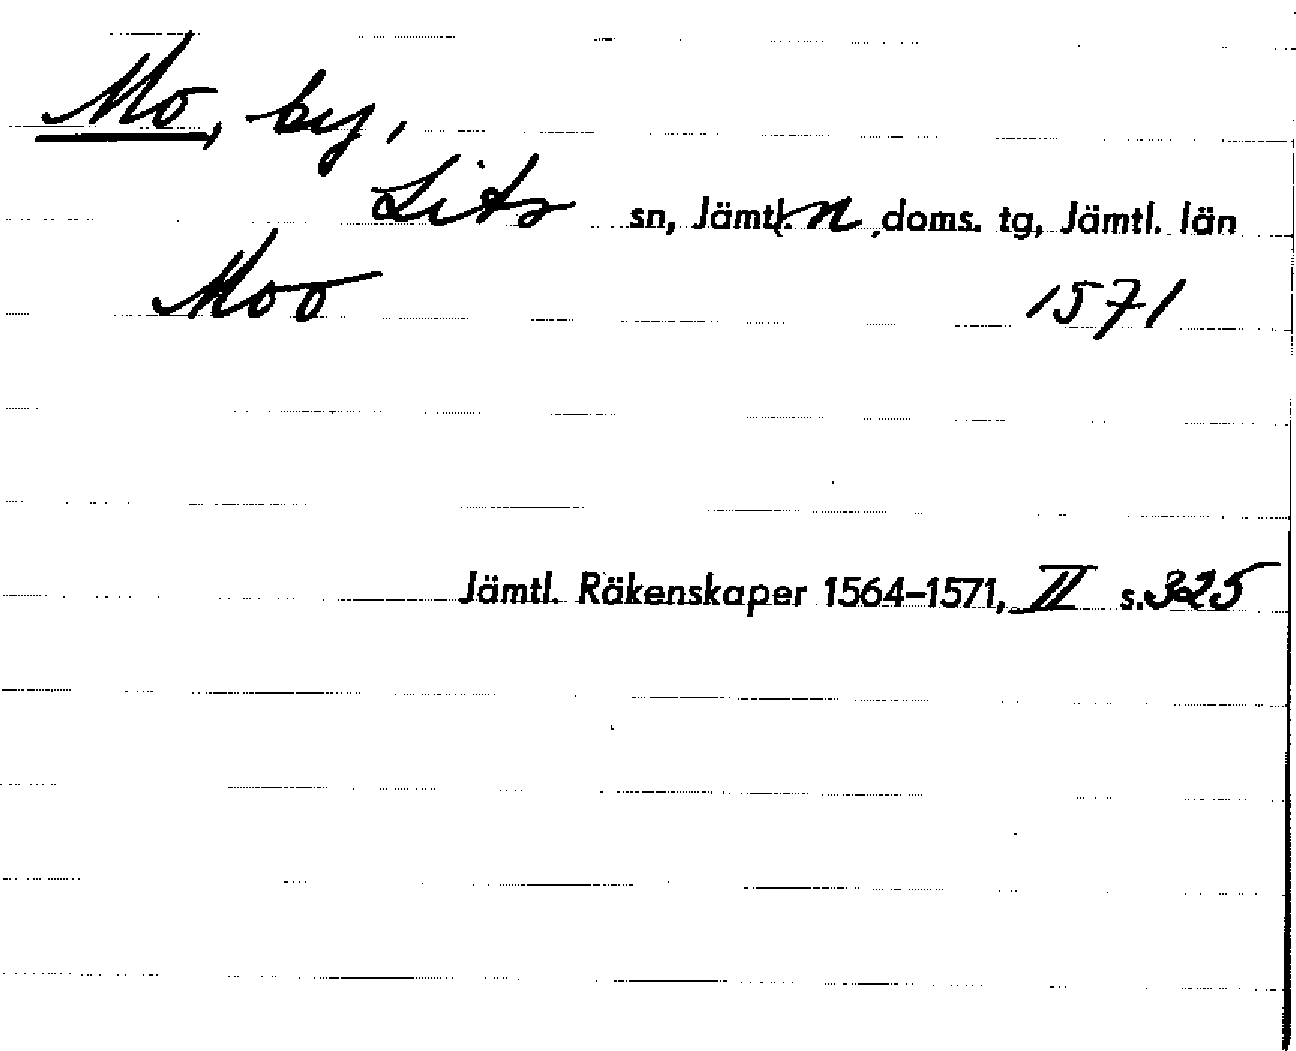 Mo, by,
Lits sn, Jämtl. n. doms. tg, Jämtl. län
Moo 1571
Jämtl. Räkenskaper 1564–1571, II s. 325